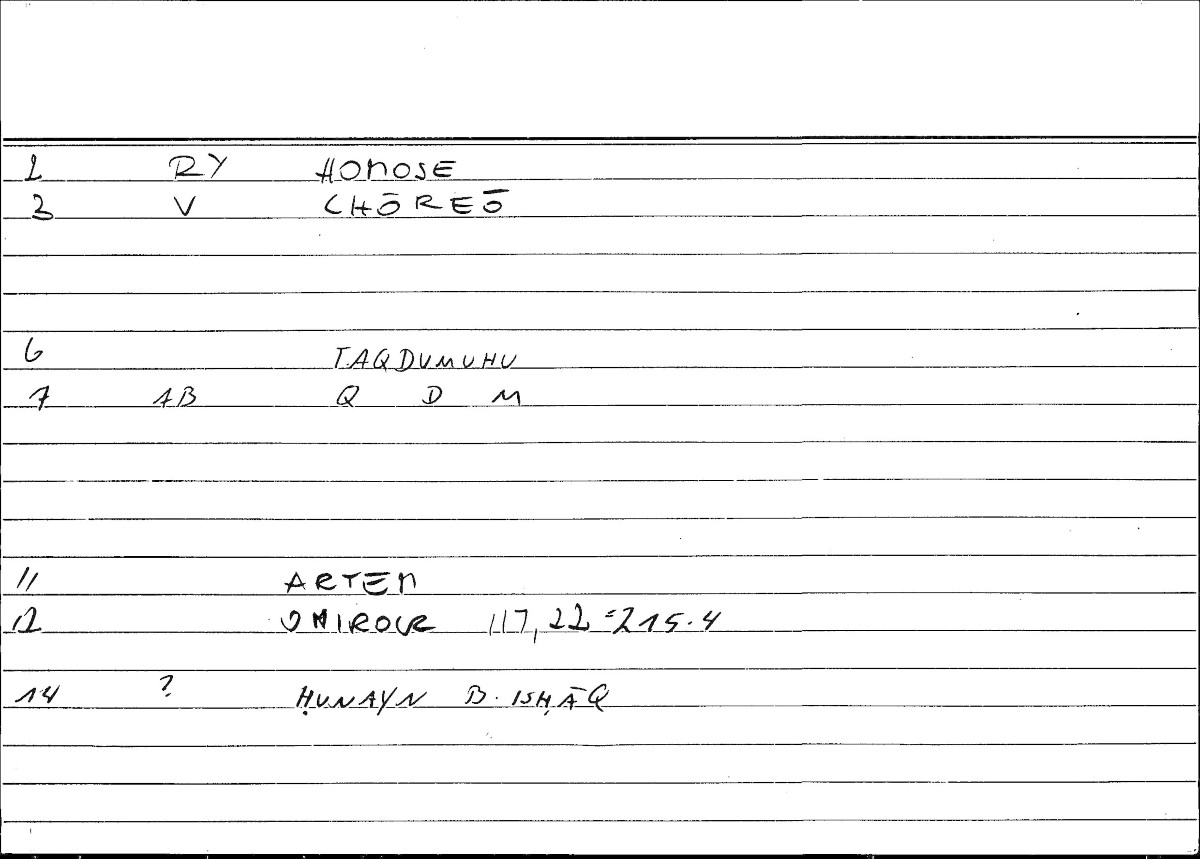 2 RY HOMOSE
3 V CHŌREŌ
6 TAQDUMUHU
7 AB Q D M
11 ARTEM
12 117,22=215.4
14 ? ḤUNAYN B. ISḤĀQ